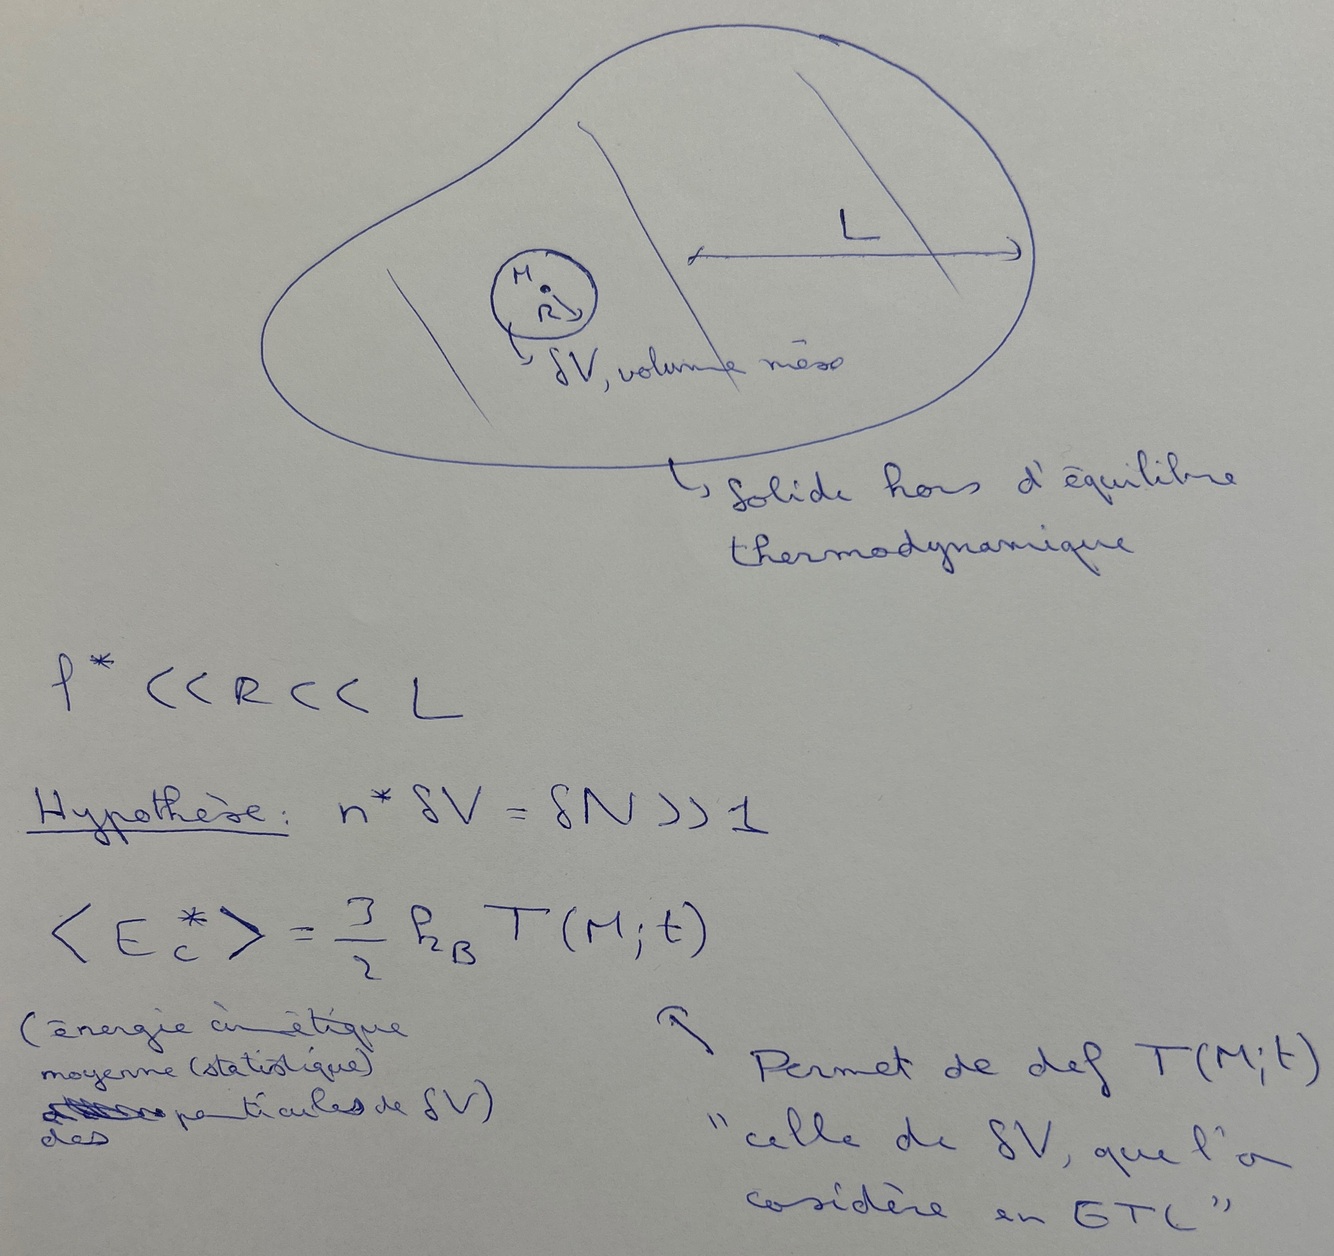 L
M
R
δV, volume méso
Solide hors d'équilibre
thermodynamique
l* << R << L
Hypothèse: n* δV = δN >> 1
<E_c*> = 3/2 k_B T(M;t)
(énergie cinétique
moyenne (statistique)
particules de δV)
des
Permet de def T(M;t)
"celle de δV, que l'on
cosidère en ETL"